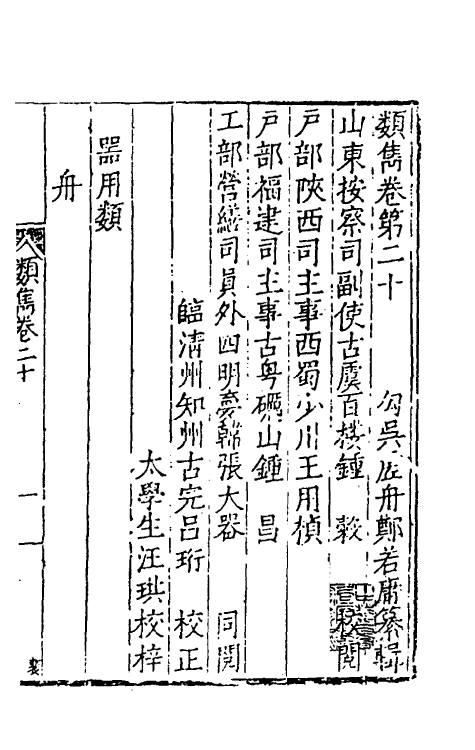 類雋卷第二十　勾吳　虛舟鄭若庸纂輯
山東按察司副使古虞百樓鍾　穀　校閱
戶部陜西司主事西蜀少川王用楨
戶部福建司主事古粵礪山鍾　昌
工部營繕司員外四明張大器　同閱
臨清州知州古完呂珩　校正
太學生汪珙校梓
器用類
舟
類雋卷二十
一